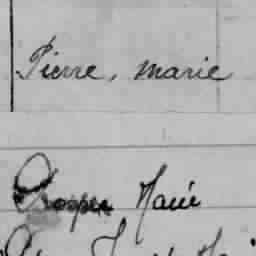 Pierre, marie
Prosper Marie